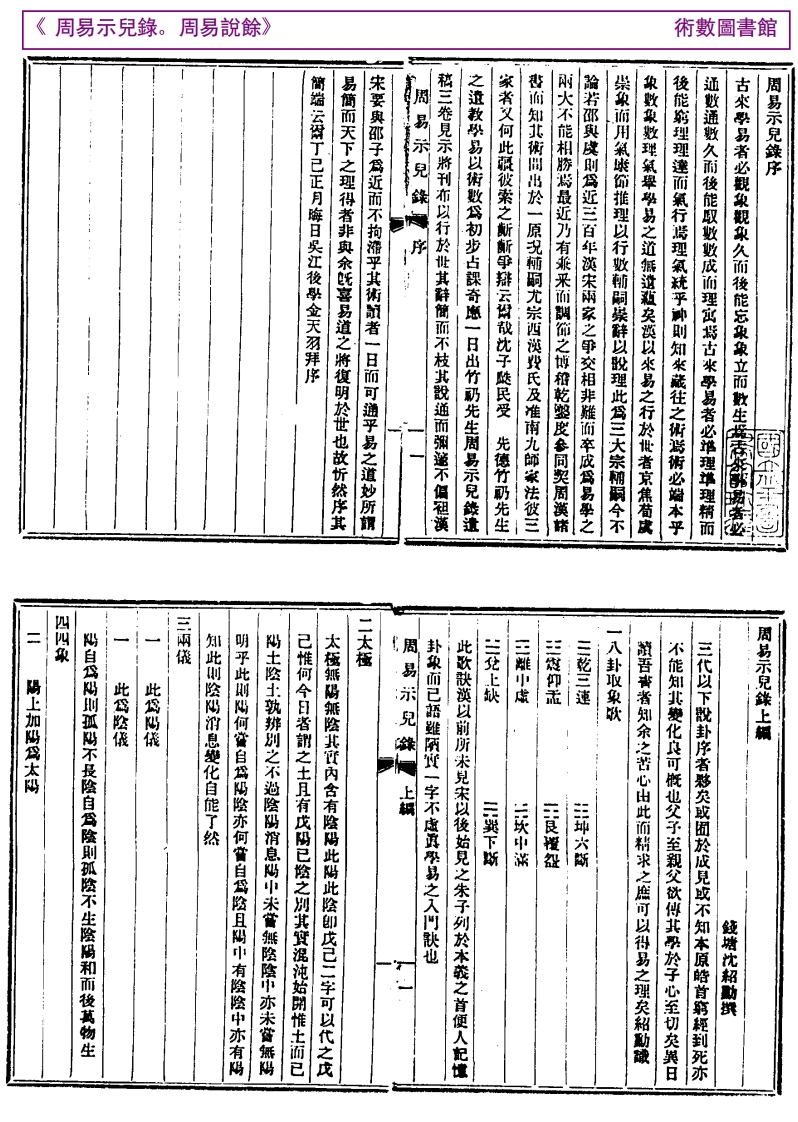 《 周易示兒錄。周易說餘》
術數圖書館
周易示兒錄序
古來學易者必觀象觀象久而後能忘象象立而數生焉古來學易者必
通數通數久而後能馭數數成而理寓焉古來學易者必準理準理精而
後能窮理理達而氣行焉理氣統乎神則知來藏往之術焉術必端本乎
象數象數理氣畢學易之道無遺蘊矣漢以來易之行於世者京焦荀虞
崇象而用氣康節推理以行數輔嗣崇辭以說理此為三大宗輔嗣今不
論若邵與虞則為近三百年漢宋兩家之爭交相非難而卒成為易學之
兩大不能相勝焉最近乃有兼釆而調節之博稽乾鑿度參同契周漢諸
書而知其術間出於一原況輔嗣尤宗西漢費氏及淮南九師家法彼三
家者又何此疆彼索之齗齗爭辯云爾哉沈子瓞民受 先德竹礽先生
之遺教學易以術數為初步占課奇應一日出竹礽先生周易示兒錄遺
稿三卷見示將刊布以行於世其辭簡而不枝其說通而彌邃不偏袒漢
周易示兒錄 序 一
宋要與邵子為近而不拘滯乎其術讀者一日而可通乎易之道妙所謂
易簡而天下之理得者非與余既喜易道之將復明於世也故忻然序其
簡端云爾丁巳正月晦日吳江後學金天羽拜序
周易示兒錄上編
錢塘沈紹勳撰
三代以下說卦序者夥矣或囿於成見或不知本原皓首窮經到死亦
不能知其變化良可慨也父子至親父欲傳其學於子心至切矣異日
讀吾書者知余之苦心由此而精求之庶可以得易之理矣紹勳識
一八卦取象歌
☰乾三連 ☷坤六斷
☳震仰盂 ☶艮覆盌
☲離中虛 ☵坎中滿
☱兌上缺 ☴巽下斷
此歌訣漢以前所未見宋以後始見之朱子列於本義之首便人記憶
卦象而已語雖陋實一字不虛真學易之入門訣也
周易示兒錄 上編 一
二太極
太極無陽無陰其實內含有陰陽此陽此陰卽戊己二字可以代之戊
己惟何今日者謂之土且有戊陽己陰之別其實混沌始開惟土而已
陽土陰土孰辨別之不過陰陽消息陽中未嘗無陰陰中亦未嘗無陽
明乎此則陽何嘗自為陽陰亦何嘗自為陰且陽中有陰陰中亦有陽
知此則陰陽消息變化自能了然
三兩儀
一 此為陽儀
一 此為陰儀
陽自為陽則孤陽不長陰自為陰則孤陰不生陰陽和而後萬物生
四四象
二 陽上加陽為太陽